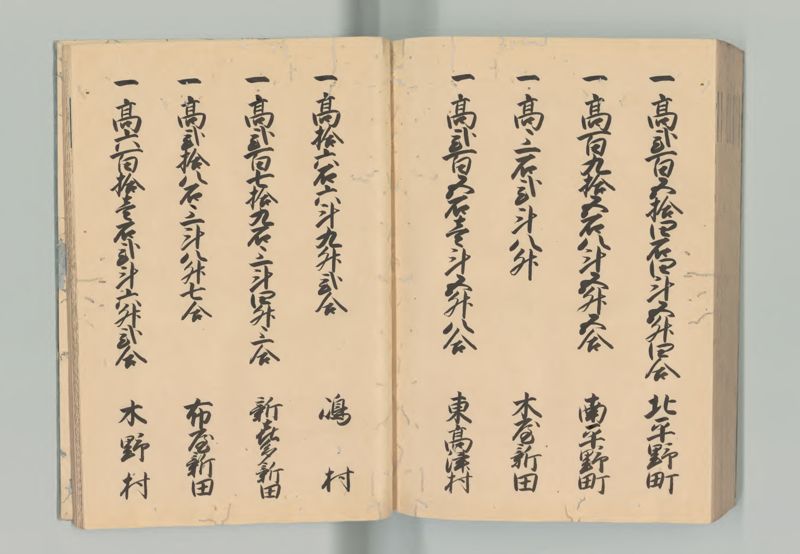 一高弐百五拾四石四斗五升四合 北平野町
一高百九拾五石八斗五升五合 南平野町
一高三石弐斗八升 木屋新田
一高弐百五石壱斗五升八合 東高津村
一高拾六石六斗九升弐合 嶋村
一高弐百七拾九石三斗四升三合 新喜多新田
一高弐拾八石三斗八升七合 布屋新田
一高六百拾壱石弐斗六升弐合 木野村